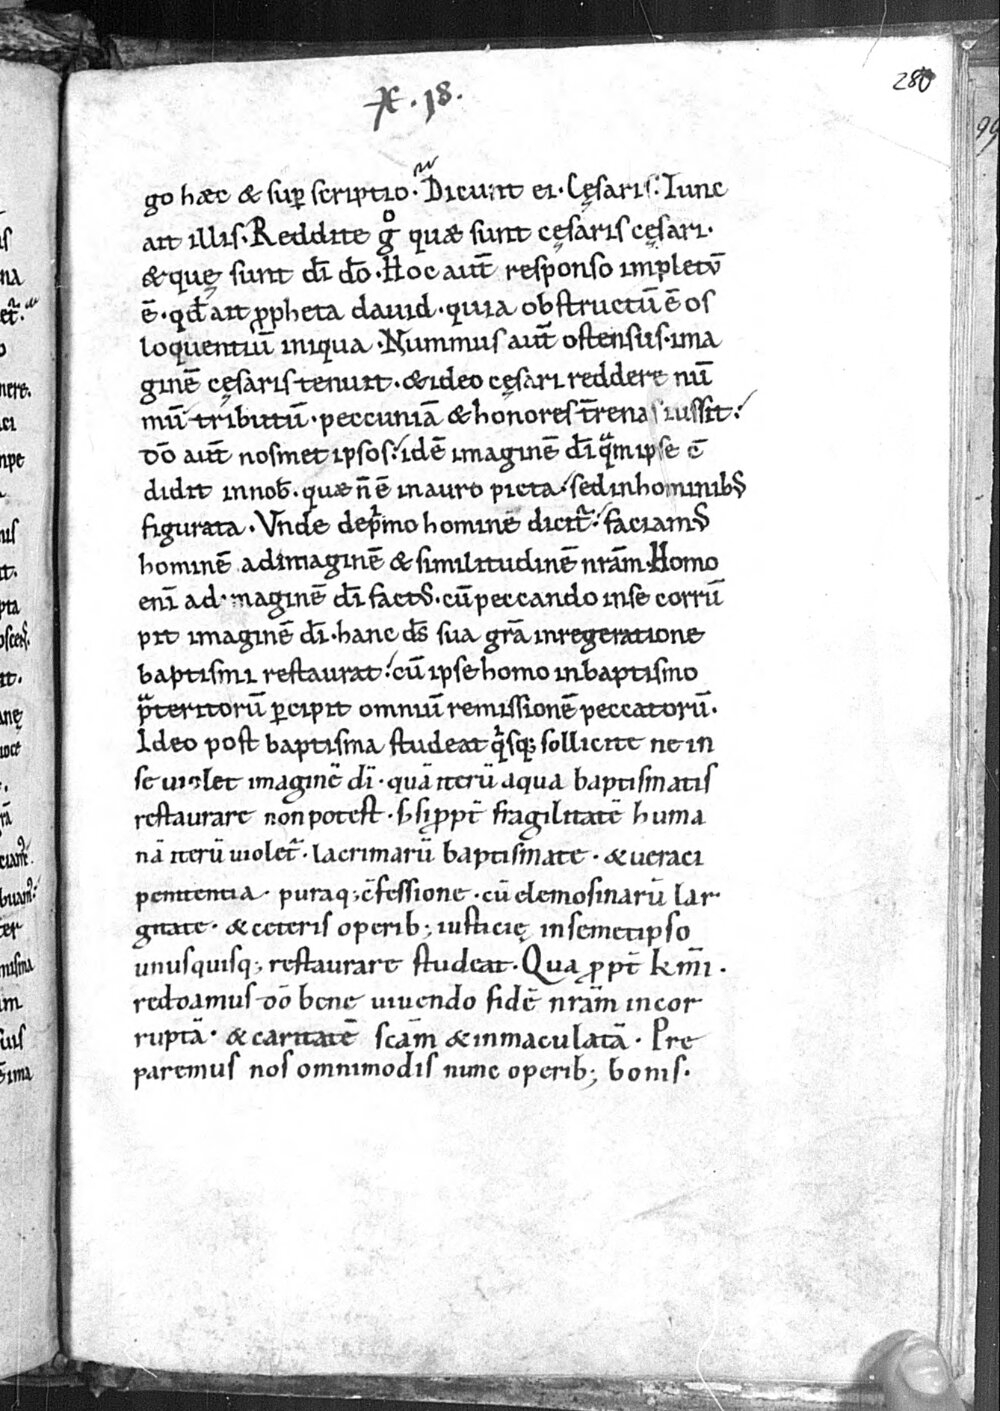 X. 18.
280
99
go hæc & sup̱ scriptio. Dicunt ei. Cęsaris. Tunc
ait illis. Reddite gͦ quæ sunt cęsaris cęsari.
& quę sunt dī dō. Hoc aut̄ responso impletū
ē. qd̄ ait ꝓpheta dauid. quia obstructū ē os
loquentiū iniqua. Nummus aut̄ ostensus. ima
ginē cęsaris tenuit. & ideo cęsari reddere nū
mū tributū. peccuniā & honores t̄renas iussit.
dō aut̄ nosmet ipsos. idē imaginē dī qͣm ipse c̄
didit in nob̄. quæ n̄ ē in auro picta. sed in hominibꝰ
figurata. Vnde de pͥmo homine dicit᷑. faciamꝰ
hominē ad imaginē & similitudinē nrā̄m. Homo
eni̅ ad imaginē dī factꝰ. cū peccando in se corrū
pit imaginē dī. hanc ds̄ sua grā in regeratione
baptismi restaurat. cū ipse homo in baptismo
pͣteritorū ꝑcipit omniū remissionē peccatorū.
Ideo post baptisma studeat qͥsq; sollicite ne in
se uiolet imaginē dī. quā iterū aqua baptismatis
restaurare non potest. S; si ꝓpt̄ fragilitatē huma
nā iterū uiolet᷑. lacrimarū baptismate. & ueraci
penitentia. puraq; c̄fessione. cū elemosinarū lar
gitate. & ceteris operib; iusticię in semetipso
unusquisq; restaurare studeat. Qua ꝓpt̄ km̄i.
reddamus dō bene uiuendo fidē nrā̄m incor
ruptā. & caritatē scām & inmaculatā. Pre
paremus nos omnimodis nunc operib; bonis.